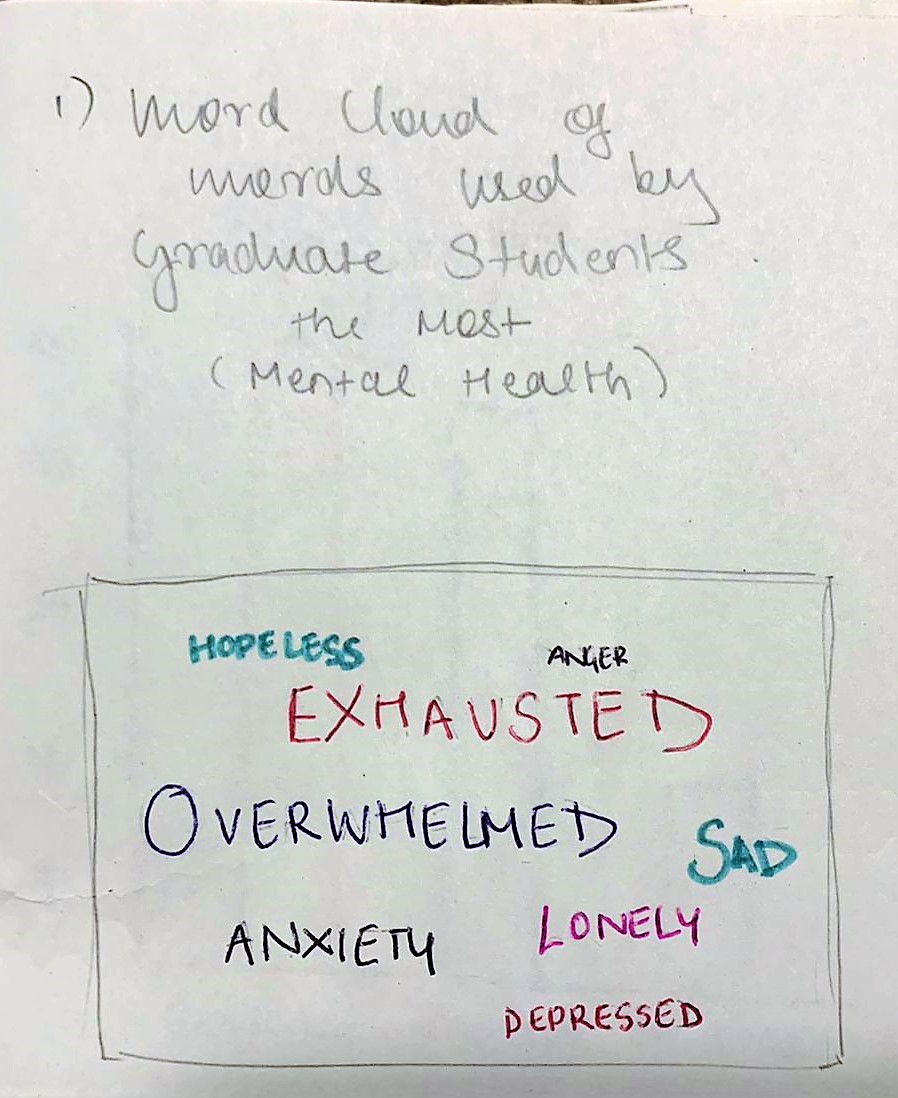 1) Word Cloud of
words used by
Graduate Students
the Most
(Mental Health)
HOPELESS
ANGER
EXHAUSTED
OVERWHELMED
SAD
ANXIETY
LONELY
DEPRESSED